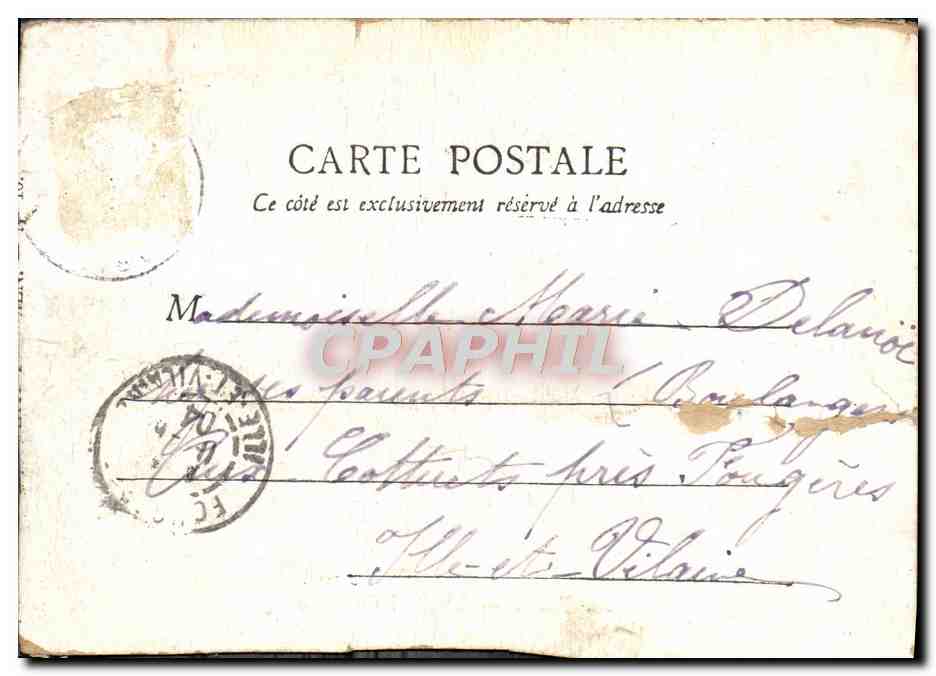 CARTE POSTALE
Ce côté est exclusivement réservé à l'adresse
Mademoiselle Marie Delanöe
ses parents Boulanger
Aux Cottrets près Fougères
Ille-et-Vilaine
CPAPHIL
ILLE-ET-VILAINE
04